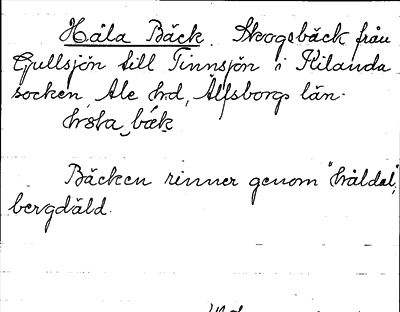 Håla Bäck. Skogsbäck från
Gullsjön till Tinnsjön i Kilanda
socken, Ale hd, Älfsborgs län.
bäk
Bäcken rinner genom "håldal",
bergdäld.